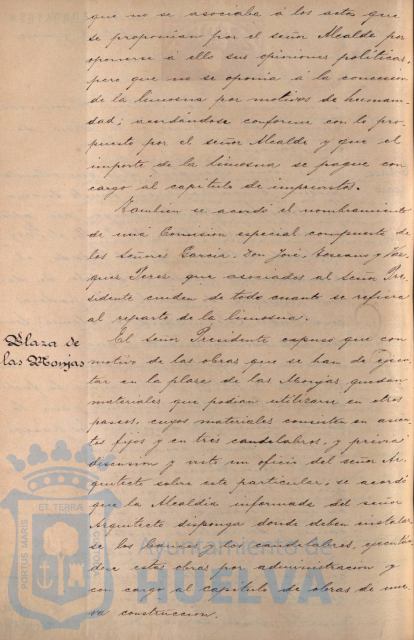 que no se asociaba á los actos que
se proponian por el señor Alcalde por
oponerse á ello sus opiniones políticas,
pero que no se oponia á la concesion
de la limosna por motivos de humani-
dad; acordándose conforme con lo pro-
puesto por el señor Alcalde y que el
importe de la limosna se pague con
cargo al capitulo de imprevistos.
Tambien se acordó el nombramiento
de una Comision especial compuesta de
los Señores Garcia, Don José, y Vaz-
quez Perez que asociados al Señor Pre-
sidente cuiden de todo cuanto se refiera
al reparto de la limosna.
Plaza de
las Monjas
El Señor Presidente expuso que con
motivo de las obras que se han de ejecu-
tar en la plaza de las Monjas quedan
materiales que podian utilizarse en otros
paseos, cuyos materiales consisten en asien-
tos fijos y en tres candelabros, y prévia
discusion y visto un oficio del señor Ar-
quitecto sobre este particular, se acordó
que la Alcaldia informada del señor
Arquitecto disponga donde deben instalar-
se los bancos y los candelabros, ejecután-
dose estas obras por administracion y
con cargo al capitulo de obras de nue-
va construccion.
PORTUS MARIS
ET TERRA
Ayuntamiento de
HUELVA